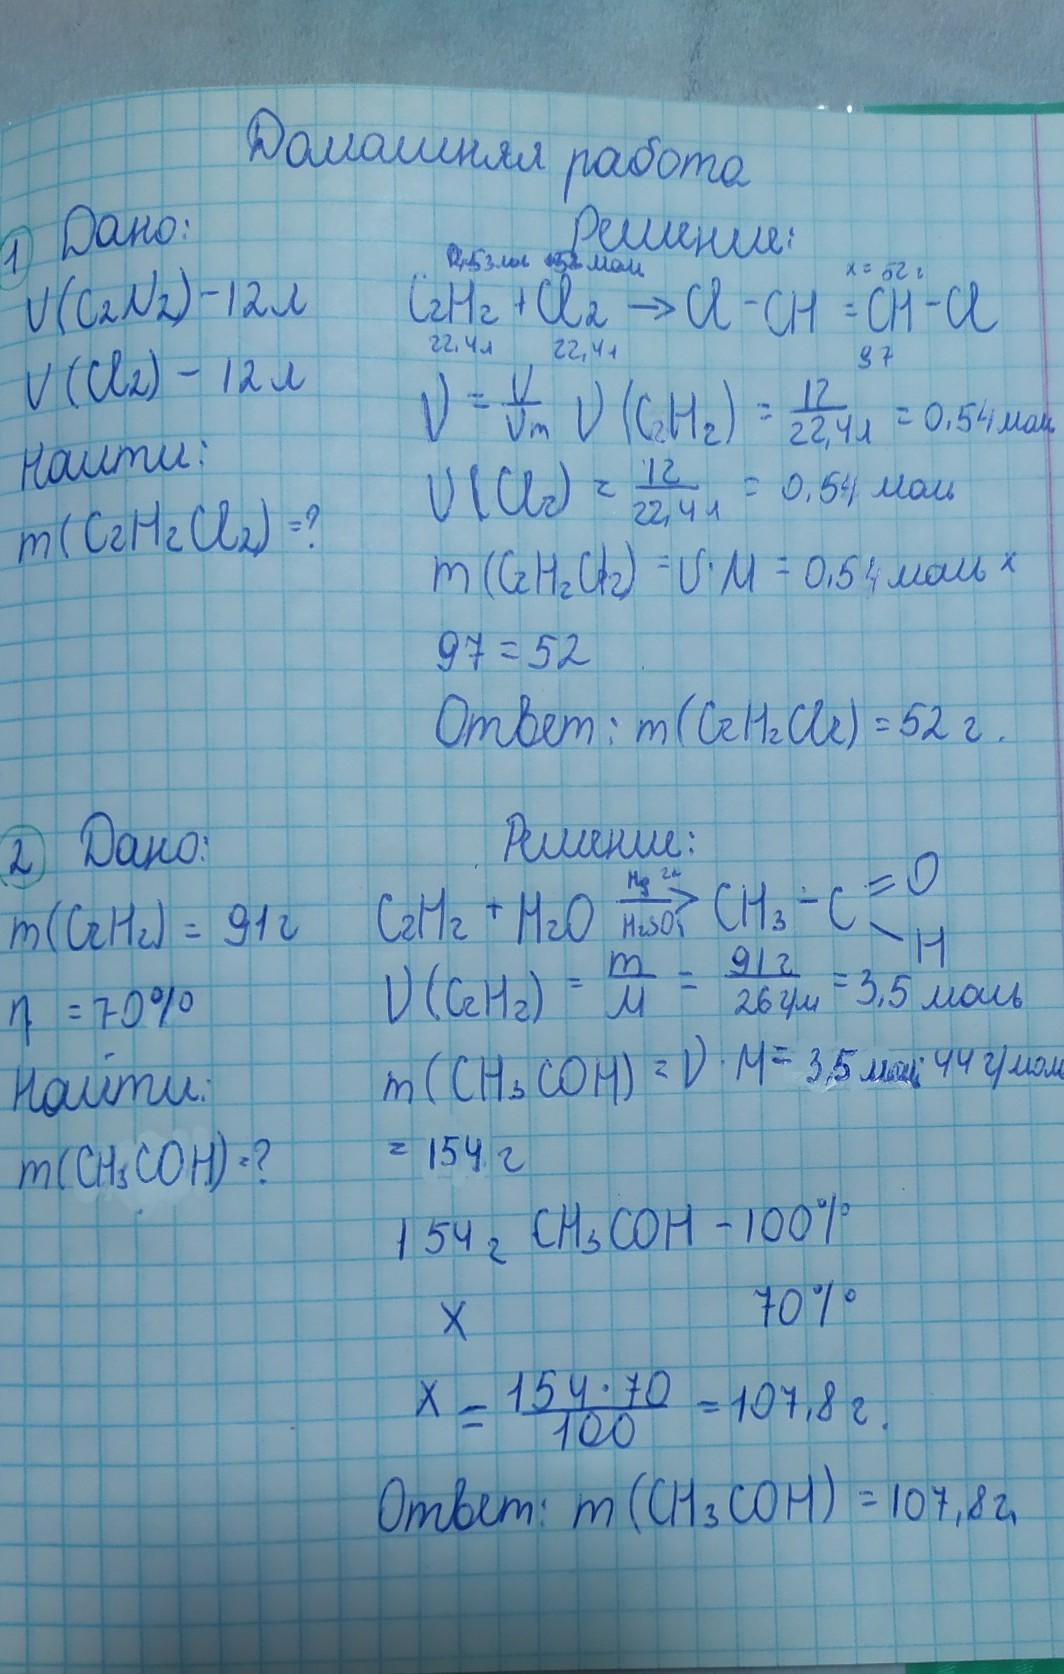 Домашняя работа
1 Дано:
V(C2N2) - 12л
V(Cl2) - 12л
Найти:
m(C2H2Cl2) = ?
Решение:
x = 52 г
C2H2 + Cl2 → Cl - CH = CH - Cl
22,4л 22,4л 97
ν = V/Vm ν(C2H2) = 12/22,4л = 0,54 моль
ν(Cl2) = 12/22,4л = 0,54 моль
m(C2H2Cl2) = ν·M = 0,54 моль x
97 = 52
Ответ: m(C2H2Cl2) = 52 г.
2 Дано:
m(C2H2) = 91г
η = 70%
Найти:
m(CH3COH) = ?
Решение:
Hg 2+
C2H2 + H2O → CH3 - C = O
H2SO4 H
ν(C2H2) = m/M = 91г/26г/м = 3,5 моль
m(CH3COH) = ν·M = 3,5 моль· 44 г/моль
= 154 г
154 г CH3COH - 100%
x 70%
x = 154·70/100 = 107,8 г.
Ответ: m(CH3COH) = 107,8г.